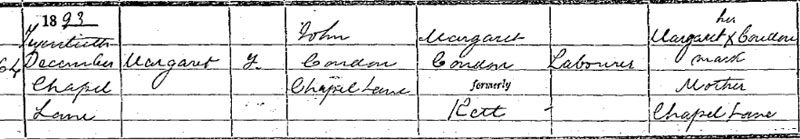 1893
Twentieth
December
Chapel
Lane
64
Margaret
F.
John
Condon
Chapel Lane
Margaret
Condon
formerly
Kett
Labourer
her
Margaret X Condon
mark
Mother
Chapel Lane